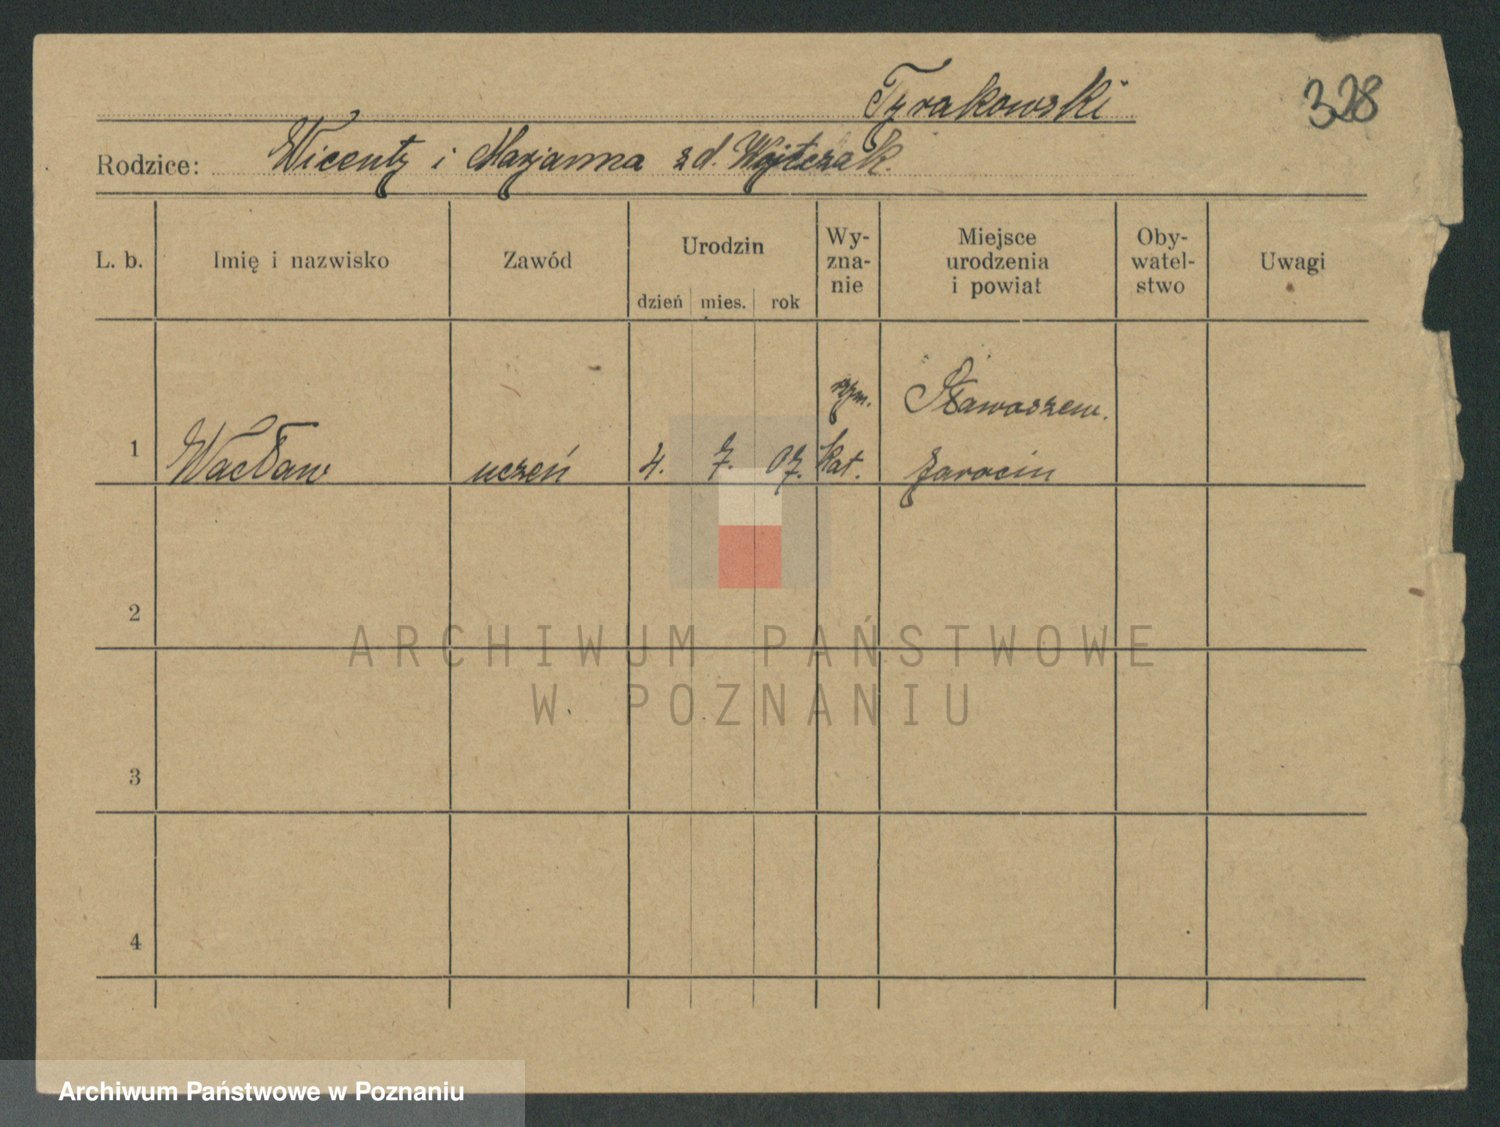 Tyrakowski 328
Rodzice: Wicenty i Marjanna z d. Wojtczak.
L. b. Imię i nazwisko Zawód Urodzin dzień mies. rok Wy-zna-nie Miejsce urodzenia i powiat Oby-watel-stwo Uwagi
rzym. Sławoszew.
1 Wacław uczeń 4. 7. 07. kat. Jarocin
2
ARCHIWUM PAŃSTWOWE
W POZNANIU
3
4
Archiwum Państwowe w Poznaniu